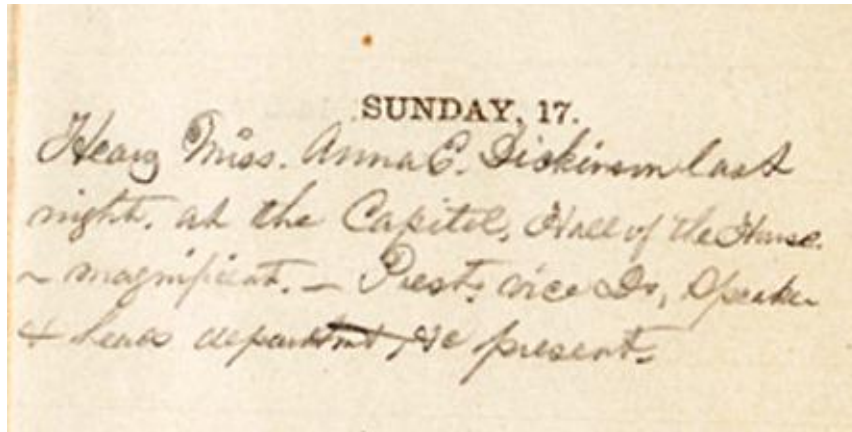 SUNDAY, 17.
Heard Miss. Anna E. Dickinson last
night. at the Capitol, Hall of the House.
~ magnificent. — Prest. vice Do, Speaker
& heads departmt, &c present.